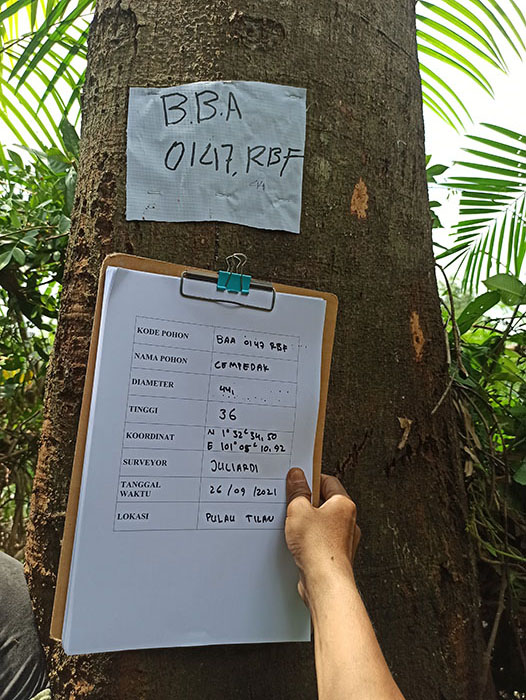 B.B.A
0147, RBF
KODE POHON BAA 0147 RBF
NAMA POHON CEMPEDAK
DIAMETER 44,
TINGGI 36
KOORDINAT N 1° 32' 34,50
E 101° 05' 10.92
SURVEYOR JULIARDI
TANGGAL WAKTU 26/09/2021
LOKASI PULAU TILAN